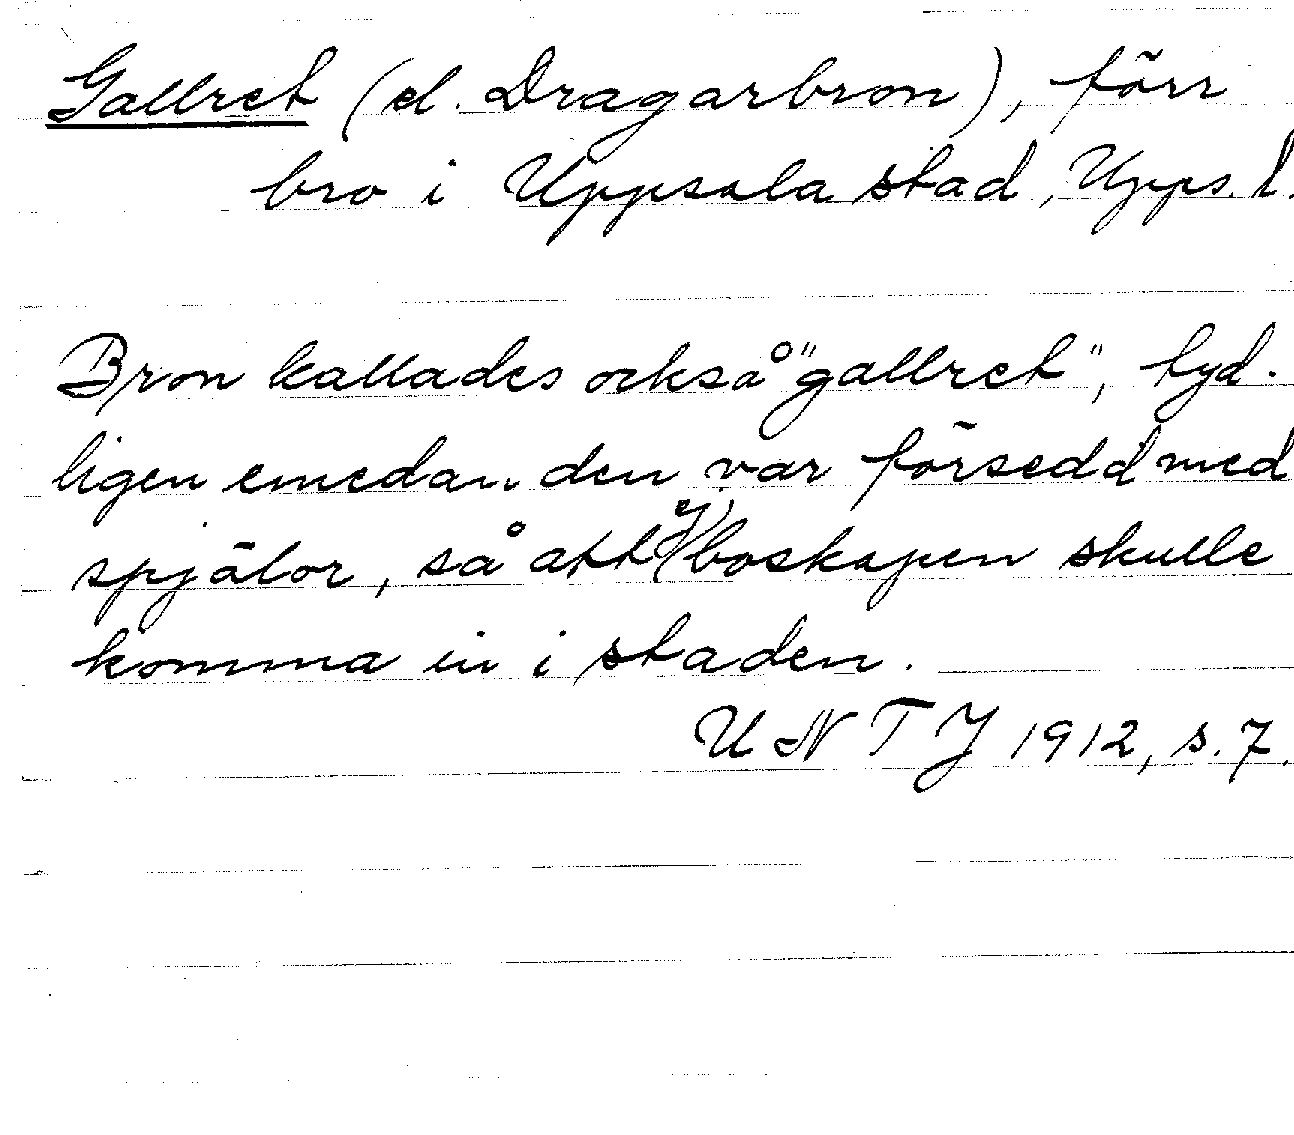 Gallret (el. Dragarbron), förr
bro i Uppsala stad, Upps. l.
Bron kallades också "gallret", tyd-
ligen emedan den var försedd med
spjälor, så att ej boskapen skulle
komma in i staden.
UNTJ 1912, s. 7.